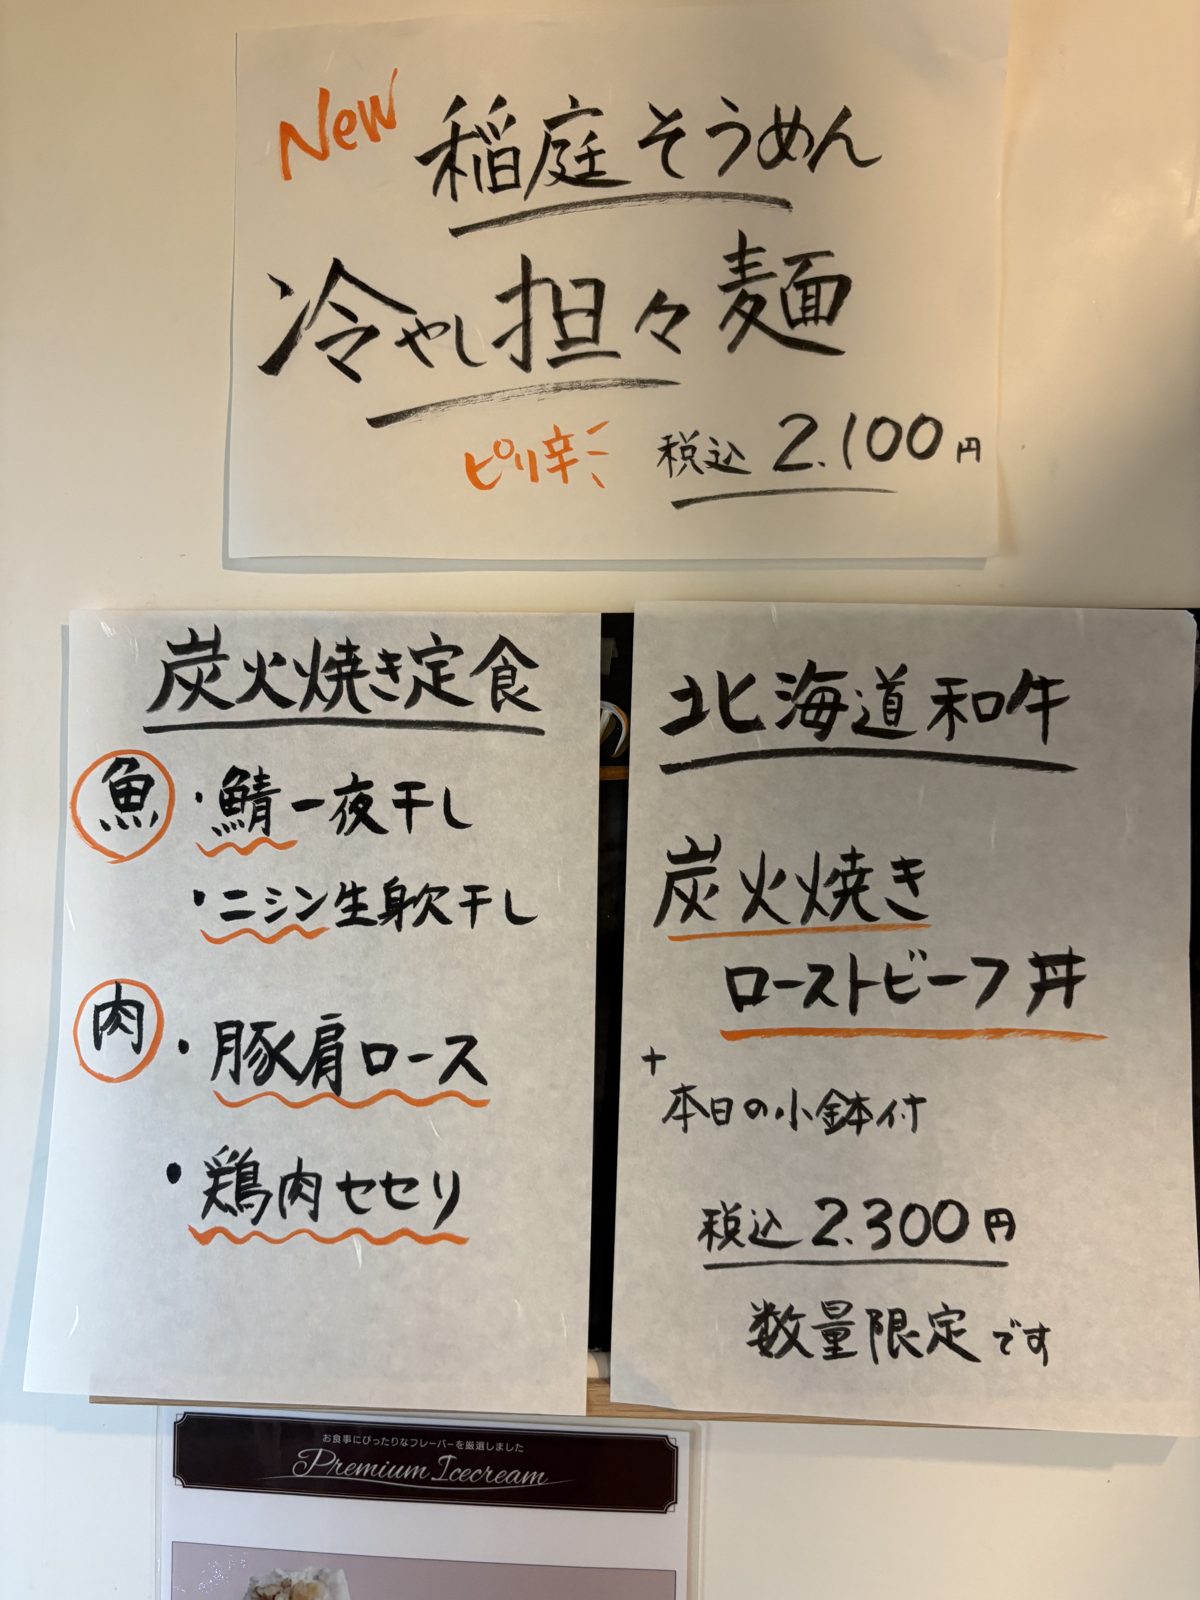 New 稲庭そうめん
冷やし担々麺
ピリ辛 税込 2.100円
炭火焼き定食
魚 ・鯖一夜干し
・ニシン生身欠干し
肉 ・豚肩ロース
・鶏肉セセリ
北海道和牛
炭火焼き
ローストビーフ丼
+
本日の小鉢付
税込 2.300円
数量限定です
お食事にぴったりなフレーバーを厳選しました
Premium Icecream